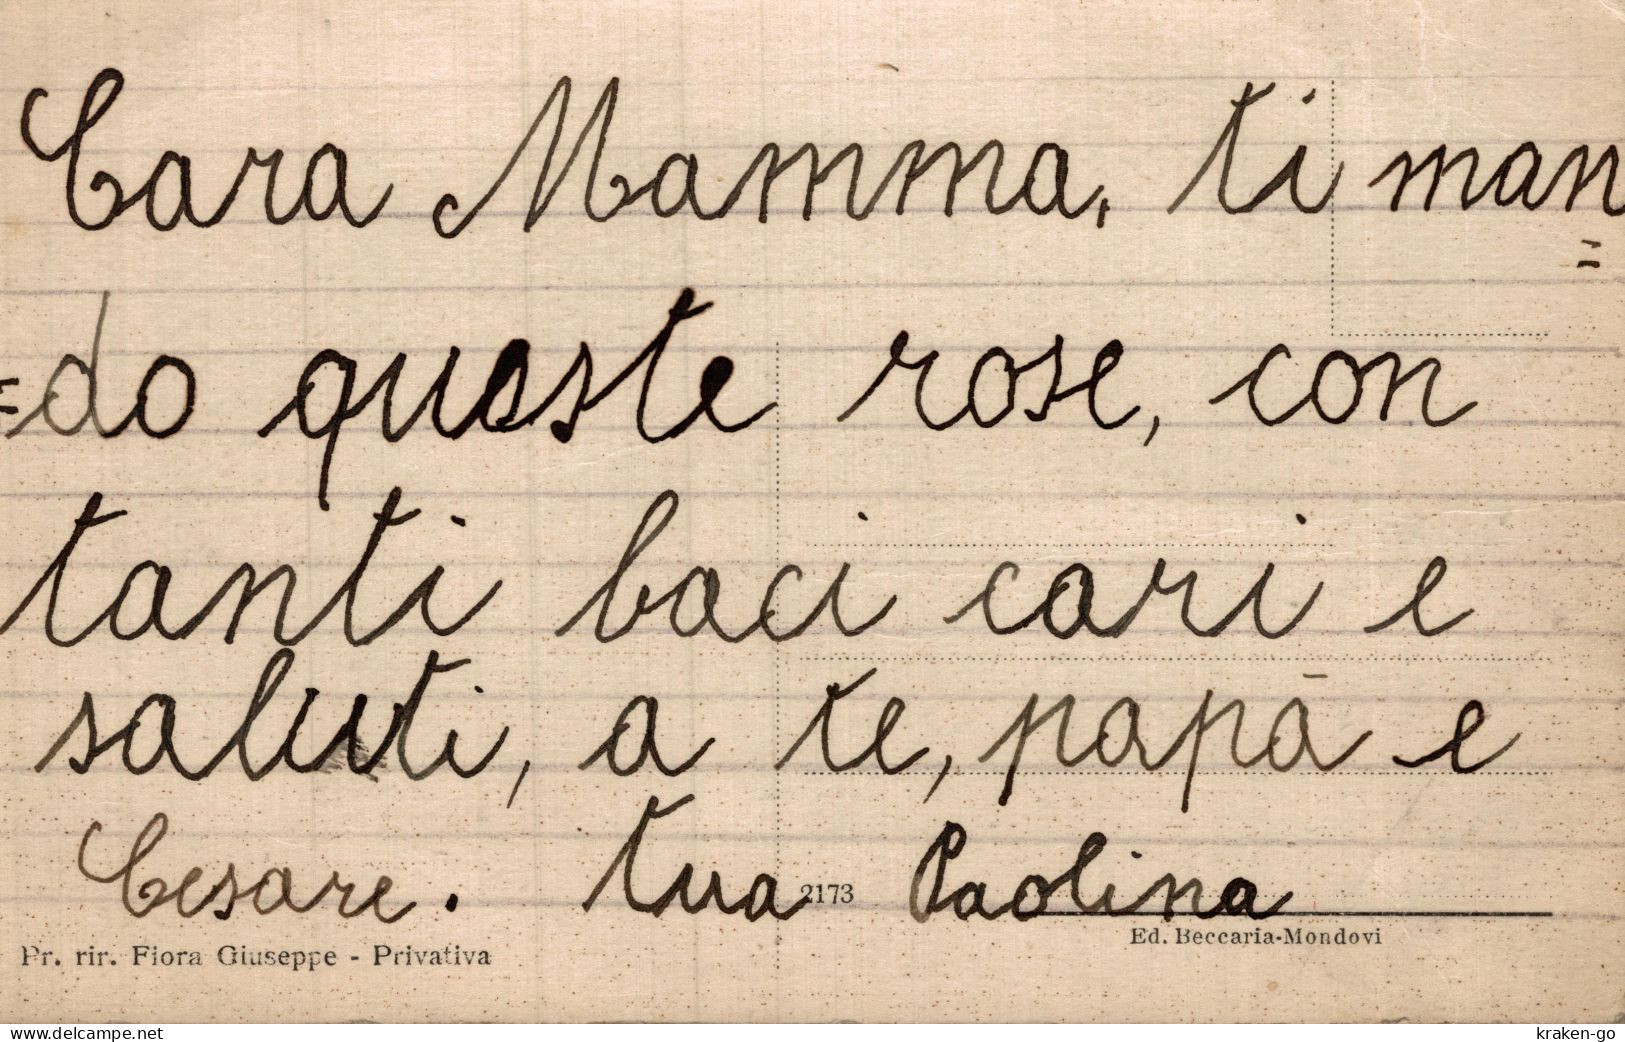 Cara Mamma, ti man
=
=do queste rose, con
tanti baci cari e
saluti, a te, papà e
Cesare. tua Paolina
2173
Ed. Beccaria-Mondovi
Pr. rir. Fiora Giuseppe - Privativa
www.delcampe.net
kraken-go